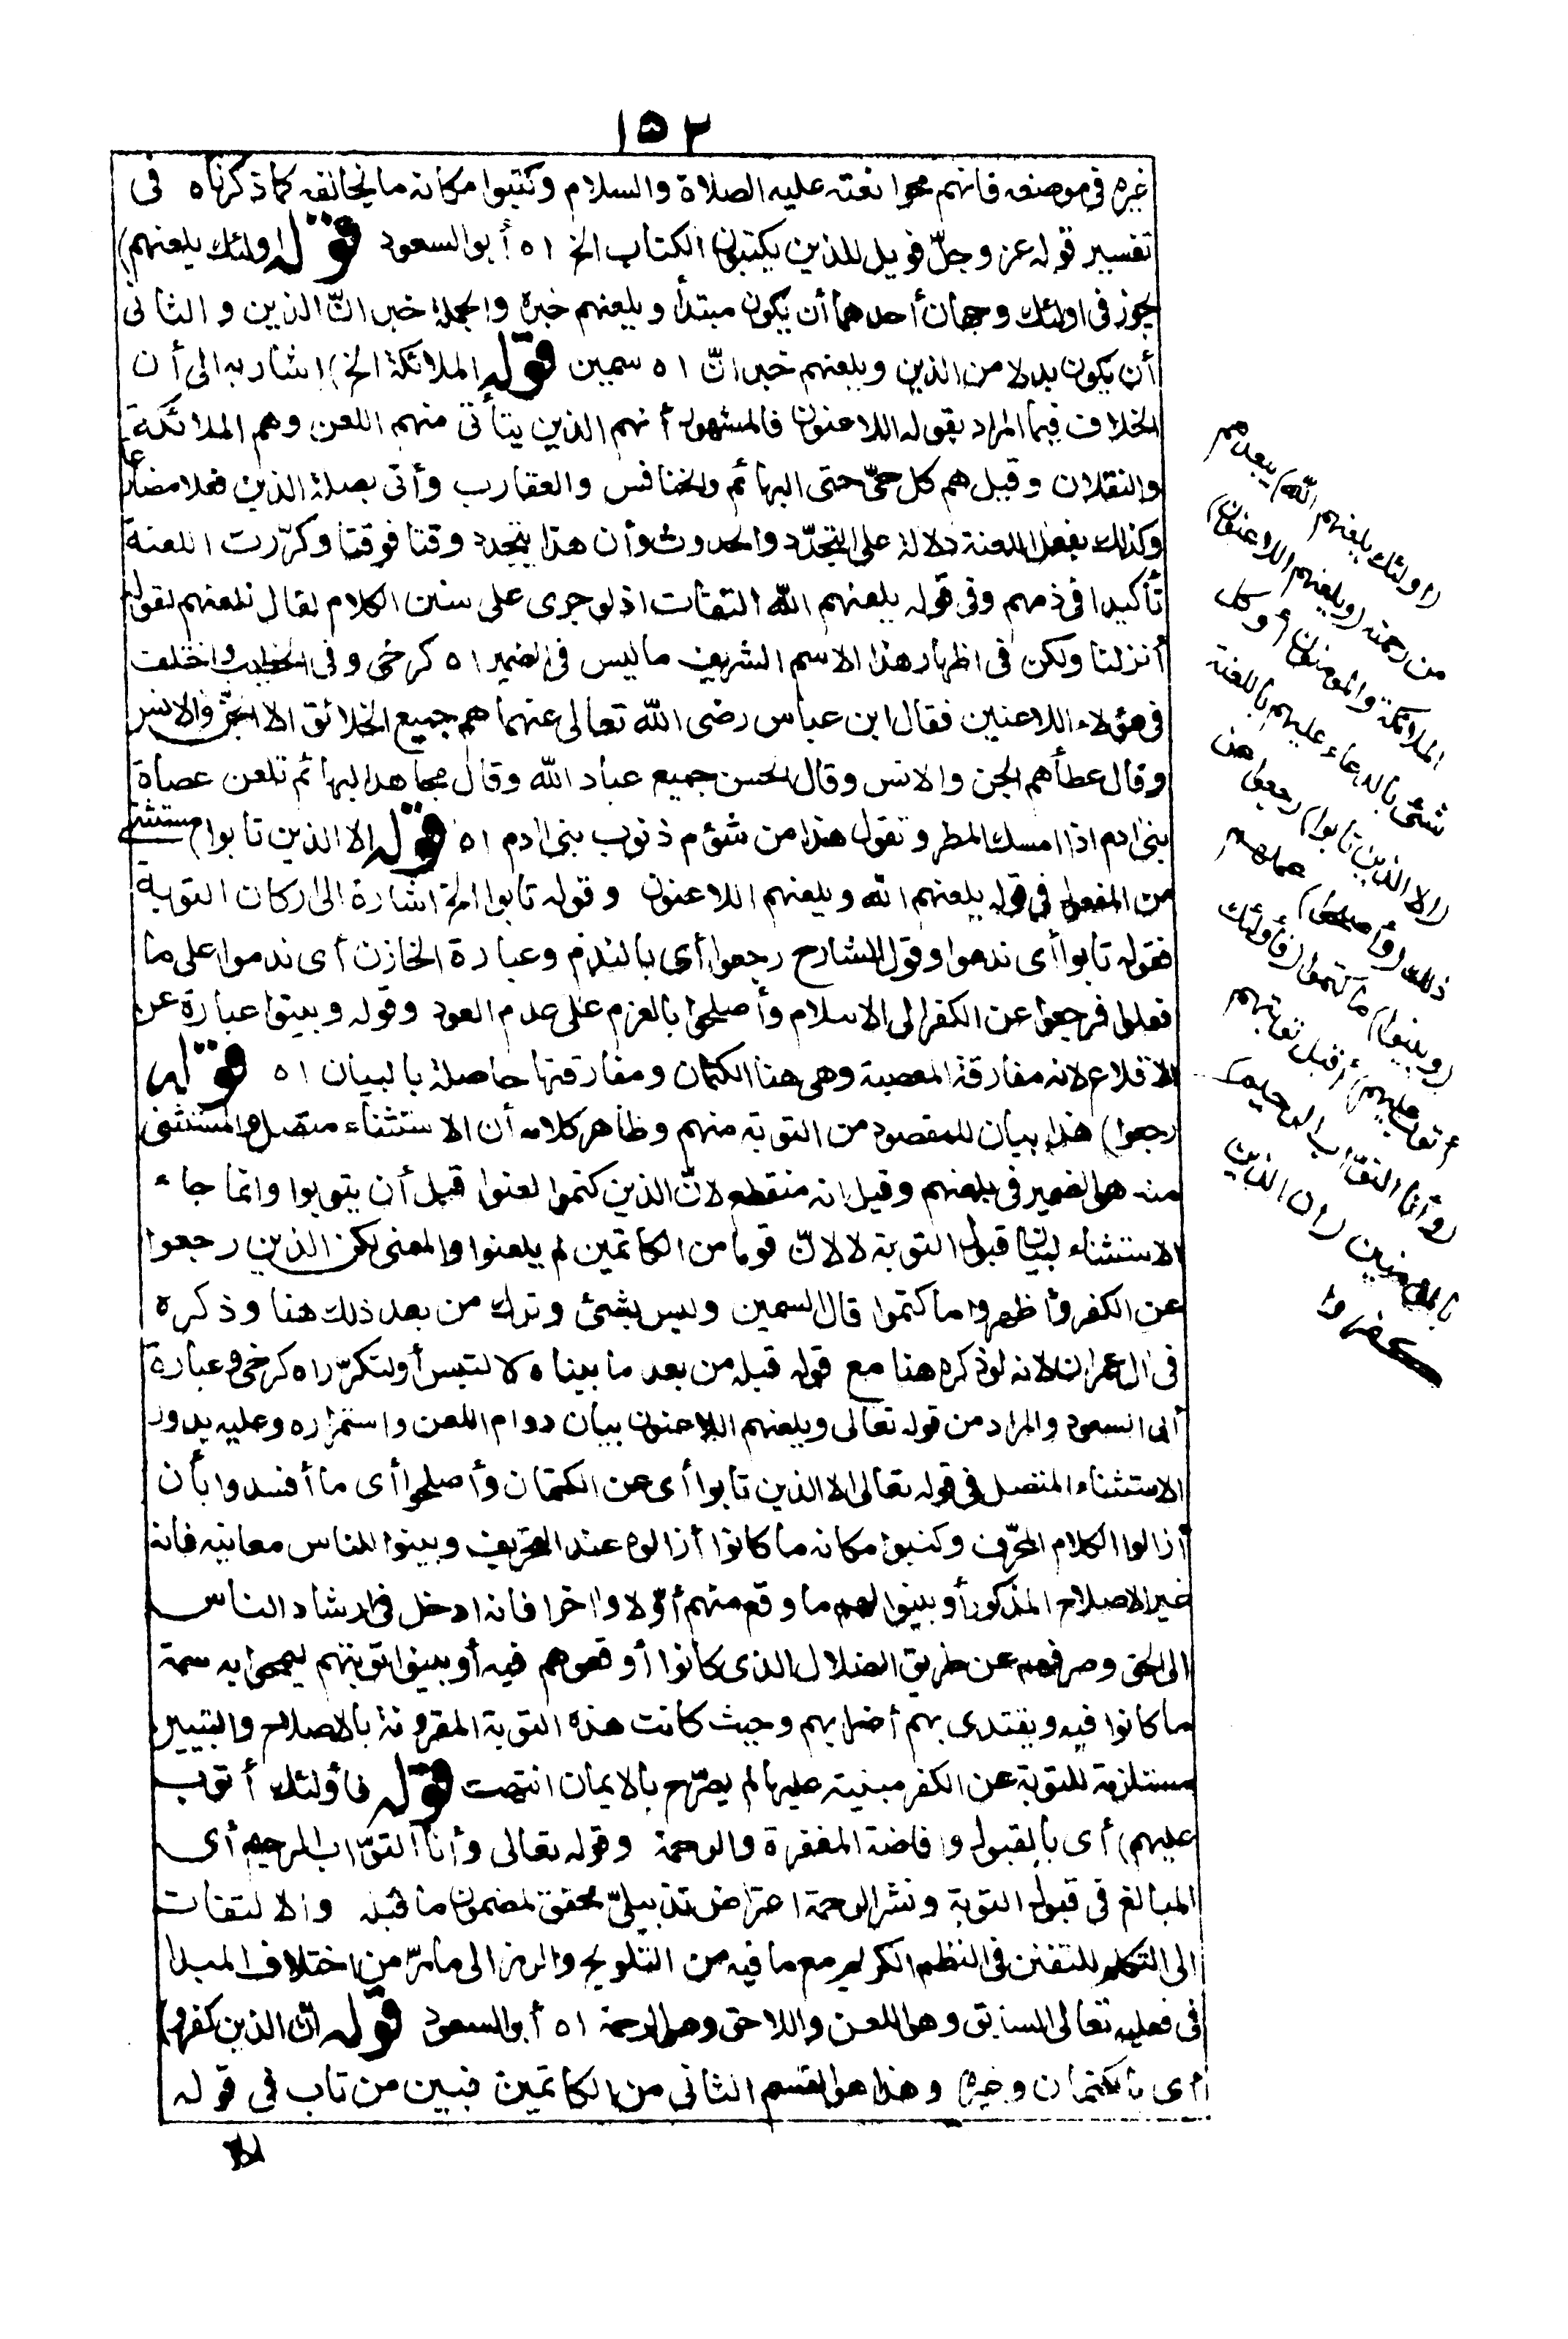 ١٥٢
غيره فى موضعه فانهم محوا نعته عليه الصلاة والسلام وكتبوا مكانه ما يخالفه كما ذكرناه فى
تفسير قوله عز وجلّ فويل للذين يكتبون الكتاب الخ اه أبو السعود قوله اولئك يلعنهم)
يجوز فى اولئك وجهان أحدهما أن يكون مبتدأ ويلعنهم خبره والجملة خبر انّ الذين والثانى
أن يكون بدلا من الذين ويلعنهم خبر انّ اه سمين قوله الملائكة الخ) اشار به الى أن
الخلاف فيما المراد بقوله اللاعنون فالمشهور أنهم الذين يتأتى منهم اللعن وهم الملائكة
والثقلان وقيل هم كل حىّ حتى البهائم والخنافس والعقارب وأتى بصلة الذين فعلا مضارعا
وكذلك بفعل اللعنة دلالة على التجدّد والحدوث وأن هذا يتجدد وقتا فوقتا وكرّرت اللعنة
تأكيدا فى ذمهم وفى قوله يلعنهم الله التفات اذ لو جرى على سنن الكلام لقال نلعنهم لقوله
أنزلنا ولكن فى اظهار هذا الاسم الشريف ما ليس فى الضمير اه كرخى وفى الخطيب واختلف
فى هؤلاء اللاعنين فقال ابن عباس رضى الله تعالى عنهما هم جميع الخلائق الا الجنّ والانس
وقال عطأهم الجن والانس وقال الحسن جميع عباد الله وقال مجاهد البهائم تلعن عصاة
بنى ادم اذا امسك المطر وتقول هذا من شؤم ذنوب بنى ادم اه قوله الا الذين تابوا) مستثنى
من المفعول فى قوله يلعنهم الله ويلعنهم اللاعنون وقوله تابوا الخ اشارة الى اركان التوبة
فقوله تابوا أى ندموا وقول الشارح رجعوا أى بالندم وعبارة الخازن أى ندموا على ما
فعلوا فرجعوا عن الكفر الى الاسلام وأصلحوا بالعزم على عدم العود وقوله وبينوا عبارة عن
الاقلاع لانه مفارقة المعصية وهى هنا الكتمان ومفارقتها حاصلة بالبيان اه قوله
رجعوا) هذا بيان للمقصود من التوبة منهم وظاهر كلامه أن الاستثناء متصل والمستثنى
منه هو الضمير فى يلعنهم وقيل انه منقطع لانّ الذين كتموا لعنوا قبل أن يتوبوا وانما جاء
الاستثناء لبيان قبول التوبة لا لانّ قوما من الكاتمين لم يلعنوا والمعنى لكن الذين رجعوا
عن الكفر وأظهروا ما كتموا قال السمين وليس بشئ وترك من بعد ذلك هنا وذكره
فى ال عمران لانه لو ذكره هنا مع قوله قبله من بعد ما بيناه لالتبس أو لتكرّر اه كرخى وعبارة
أبى السعود والمراد من قوله تعالى ويلعنهم اللاعنون بيان دوام اللعن واستمراره وعليه يدور
الاستثناء المتصل فى قوله تعالى الا الذين تابوا أى عن الكتمان وأصلحوا أى ما أفسدوا بأن
أزالوا الكلام المحرّف وكتبوا مكانه ما كانوا أزالوه عند التحريف وبينوا للناس معانيه فانه
غير الاصلاح المذكور أو بينوا لهم ما وقع منهم أوّلا واخرا فانه ادخل فى ارشاد الناس
الى الحق وصرفهم عن طريق الضلال الذى كانوا أوقعوهم فيه أو بينوا توبتهم ليمحوا به سمة
ما كانوا فيه ويقتدى بهم أضرابهم وحيث كانت هذه التوبة المقرونة بالاصلاح والتبيين
مستلزمة للتوبة عن الكفر مبنية عليها لم يصرّح بالايمان انتهت قوله فأولئك أتوب
عليهم) أى بالقبول وافاضة المغفرة والرحمة وقوله تعالى وأنا التوّاب الرحيم أى
المبالغ فى قبول التوبة ونشر الرحمة اعتراض تذييلىّ محقق لمضمون ما قبله والالتفات
الى التكلم للتفنن فى النظم الكريم مع ما فيه من التلويح والرمز الى ما مرّ من اختلاف المبدا
فى فعليه تعالى السابق وهو اللعن واللاحق وهو الرحمة اه أبو السعود قوله انّ الذين كفروا)
أى بالكتمان وغيره وهذا هو القسم الثانى من الكاتمين فبين من تاب فى قوله
الا
(اولئك يلعنهم الله) يبعدهم
من رحمته (ويلعنهم اللاعنون)
الملائكة والمؤمنون أو كل
شئ بالدعاء عليهم باللعنة
(الا الذين تابوا) رجعوا عن
ذلك (وأصلحوا) عملهم
(وبينوا) ما كتموا (فأولئك
أتوب عليهم) أقبل توبتهم
(وأنا التوّاب الرحيم)
بالمؤمنين (ان الذين
كفروا